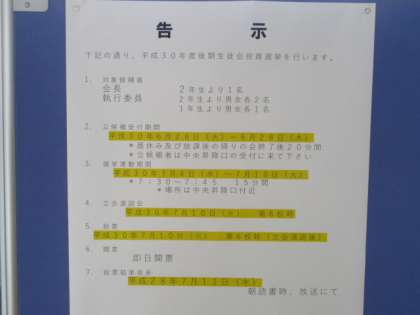 告示
下記の通り、平成30年度後期生徒会役員選挙を行います。
1. 対象候補者
会長 2年生より1名
執行委員 2年生より男女各2名
1年生より男女各1名
2. 立候補受付期間
平成30年6月26日(火)~6月28日(木)
*昼休み及び放課後の帰りの会終了後20分間
*立候補者は中央昇降口の受付に来て下さい
3. 選挙運動期間
平成30年7月4日(水)~7月10日(火)
*7:30~7:45 15分間
*場所は中央昇降口付近
4. 立会演説会
平成30年7月10日(火) 第6校時
5. 投票
平成30年7月10日(火) 第6校時(立会演説後)
6. 開票
即日開票
7. 投票結果発表
平成28年7月11日(水)
朝読書時、放送にて